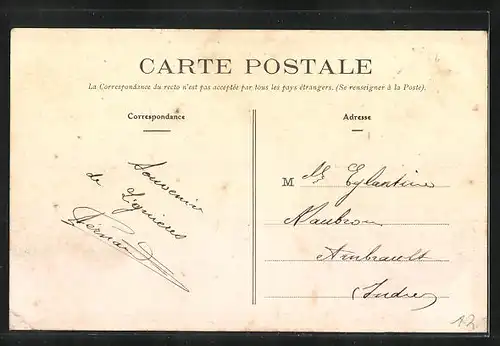 CARTE POSTALE
La Correspondance du recto n'est pas acceptée par tous les pays étrangers. (Se renseigner à la Poste).
Correspondance
Souvenir
de Lignières
Fernand
Adresse
M
Ambrault
(Indre)
12.